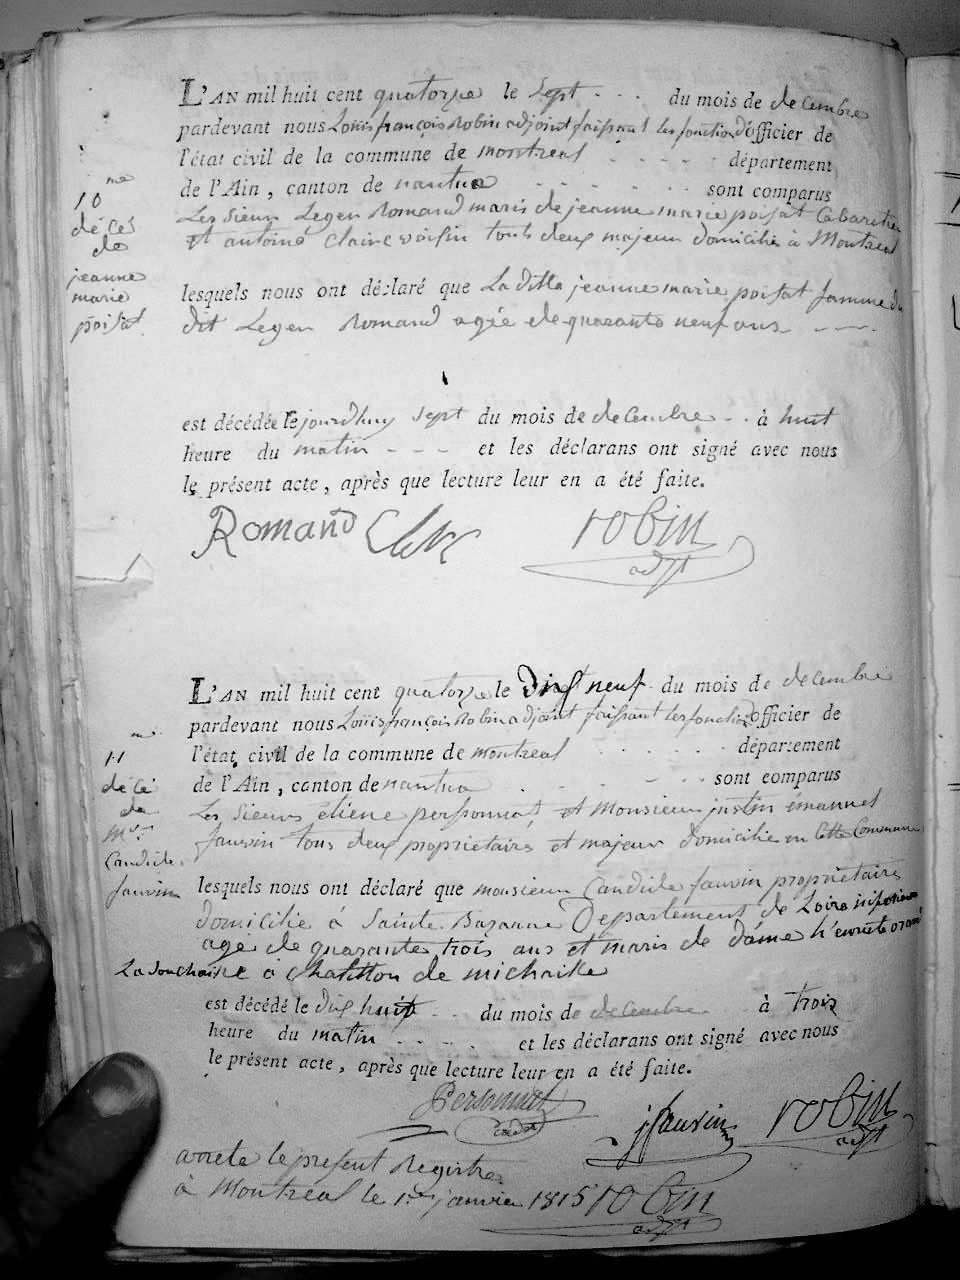 L'AN mil huit cent quatorze le Sept - - - du mois de decembre
pardevant nous Louis françois Robin adjoint faissant les fonction d'officier de
l'état civil de la commune de montreal - - - - - département
de l'Ain, canton de nantua - - - - - - sont comparus
Les Sieur Legen Romand maris de jeanne marie poisat Cabaretier
et antoine claire voisin tous deux majeur domicilié à Montreal
10me
décé
de
jeanne
marie
poisat
lesquels nous ont déclaré que La ditte jeanne marie poisat famme du
dit Legen Romand agée de quarante neuf ans - - -
est décédée le jourdhuy Sept du mois de decembre - - à huit
heure du matin - - - et les déclarans ont signé avec nous
le présent acte, après que lecture leur en a été faite.
Romand Clerc robin
adjt
L'AN mil huit cent quatorze le Dix neuf du mois de decembre
pardevant nous Louis françois Robin adjoint faissant les fonction d'officier de
l'état civil de la commune de montreal - - - - - - département
de l'Ain, canton de nantua - - - - - - sont comparus
Les Sieurs étiene personnat et Monsieur justin émanuel
fauvin tous deux propriétaire et majeur domicilié en Cette Commune
11me
décé
de
Mr
Candide
fauvin
lesquels nous ont déclaré que monsieur Candide fauvin propriétaire
domicilié à Sainte Bazanne Departement de Loire inferieure
age de quarante trois ans et maris de dáme h'enriete
à Chatillon de michaille
est décédé le dix huit - - du mois de decembre à trois
heure du matin - - - - et les déclarans ont signé avec nous
le présent acte, après que lecture leur en a été faite.
Personnat jfauvin robin
adjt
arrete le present Registre
à Montreal le 1er janvier 1815 robin
adjt